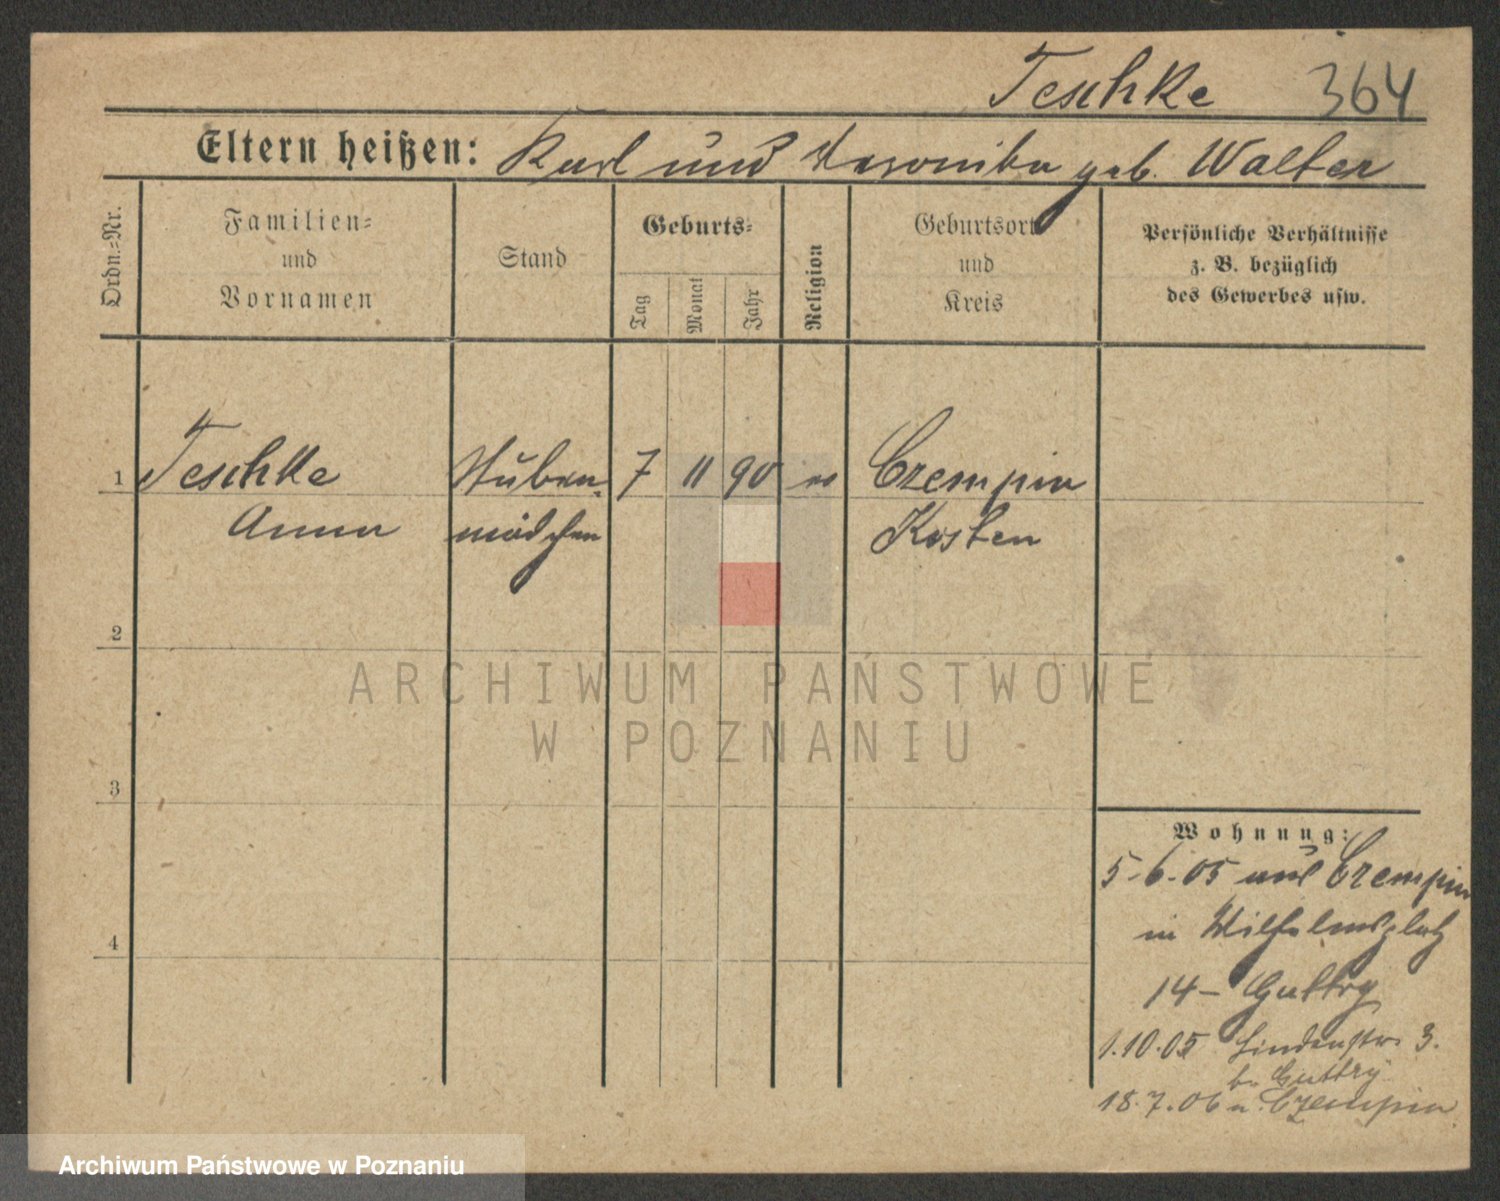 Teschke 364
Eltern heißen: Karl und Veronika geb. Walter
Ordn.=Nr.
Familien=
und
Vornamen
Stand
Geburts=
Tag
Monat
Jahr
Religion
Geburtsort
und
Kreis
Persönliche Verhältnisse
z. B. bezüglich
des Gewerbes usw.
1 Teschke Stuben- 7 11 90 Czempin
Anna mädchen Kosten
2
3
4
ARCHIWUM PAŃSTWOWE
W POZNANIU
Wohnung:
5.6.05 aus Czempin
in Wilhelmsplatz
14 - Guttry
1.10.05 Lindenstr. 3.
b. Guttry
18.7.06 n. Czempin
Archiwum Państwowe w Poznaniu